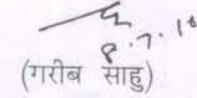 8.7.16
(गरीब साहु)